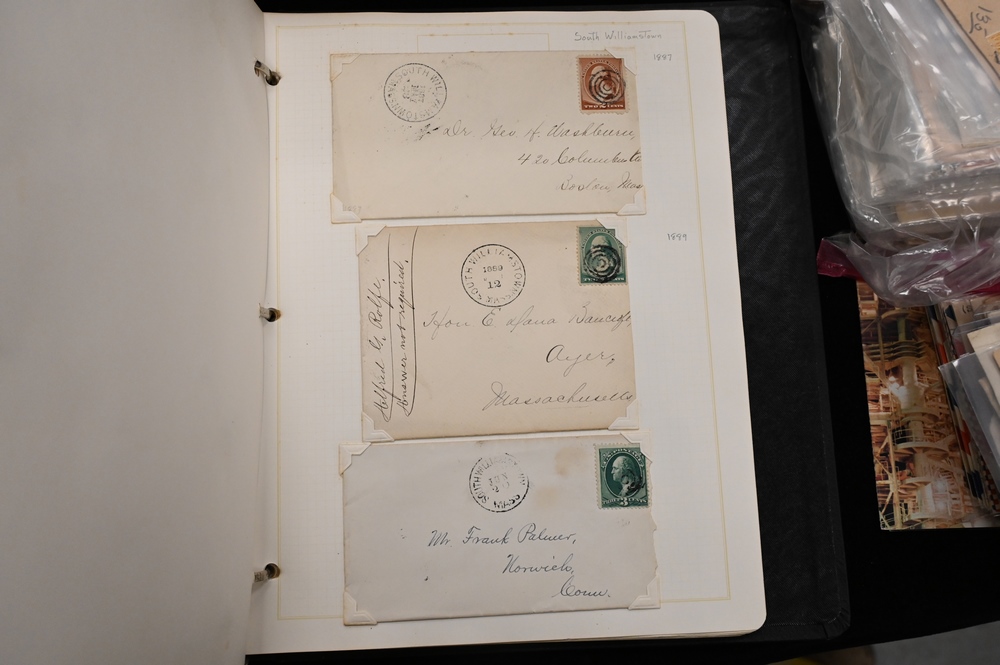 South Williamstown
1887
SOUTH WILLIAMSTOWN
TWO CENTS
Dr Geo A. Washburn,
420 Columbus
Boston, Mass
1889
SOUTH WILLIAMSTOWN
1889
12
Alfred G. Rolfe.
Answer not required.
Hon E Dana Bancroft,
Ayer,
Massachusetts
SOUTH WILLIAMSTOWN
MASS
3
CENTS
Mr. Frank Palmer,
Norwich,
Conn.